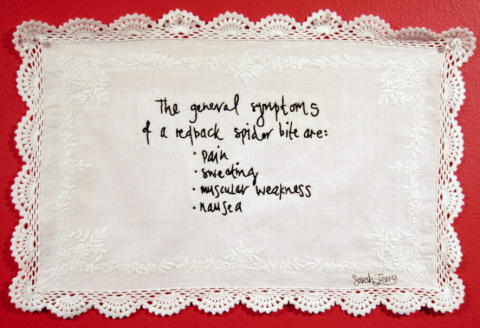 The general symptoms
of a redback spider bite are:
• pain
• sweating
• muscular weakness
• nausea
Sarah